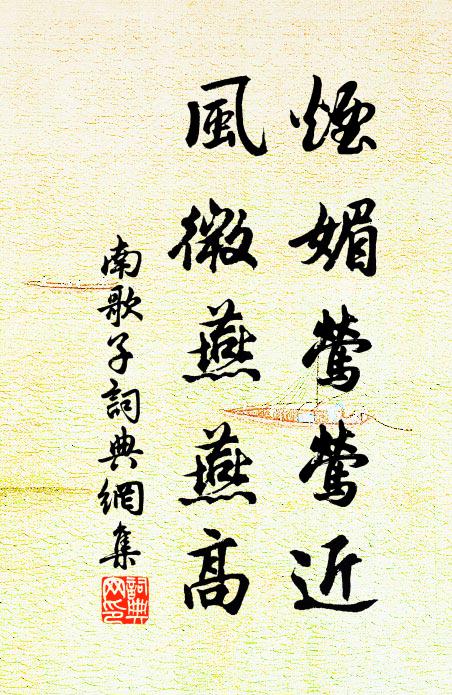 煙媚鶯鶯近
風微燕燕高
南歌子詞典網集
詞典
网印